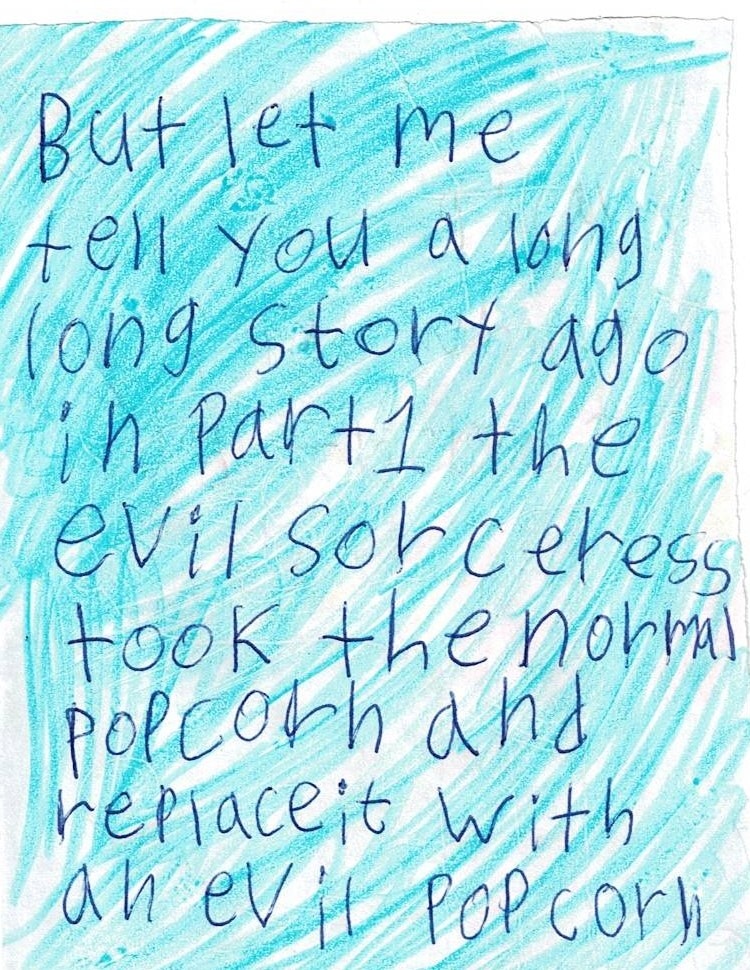 But let me
tell you a long
long story ago
in Part1 the
evil sorceress
took the normal
popcorn and
replace it with
an evil popcorn